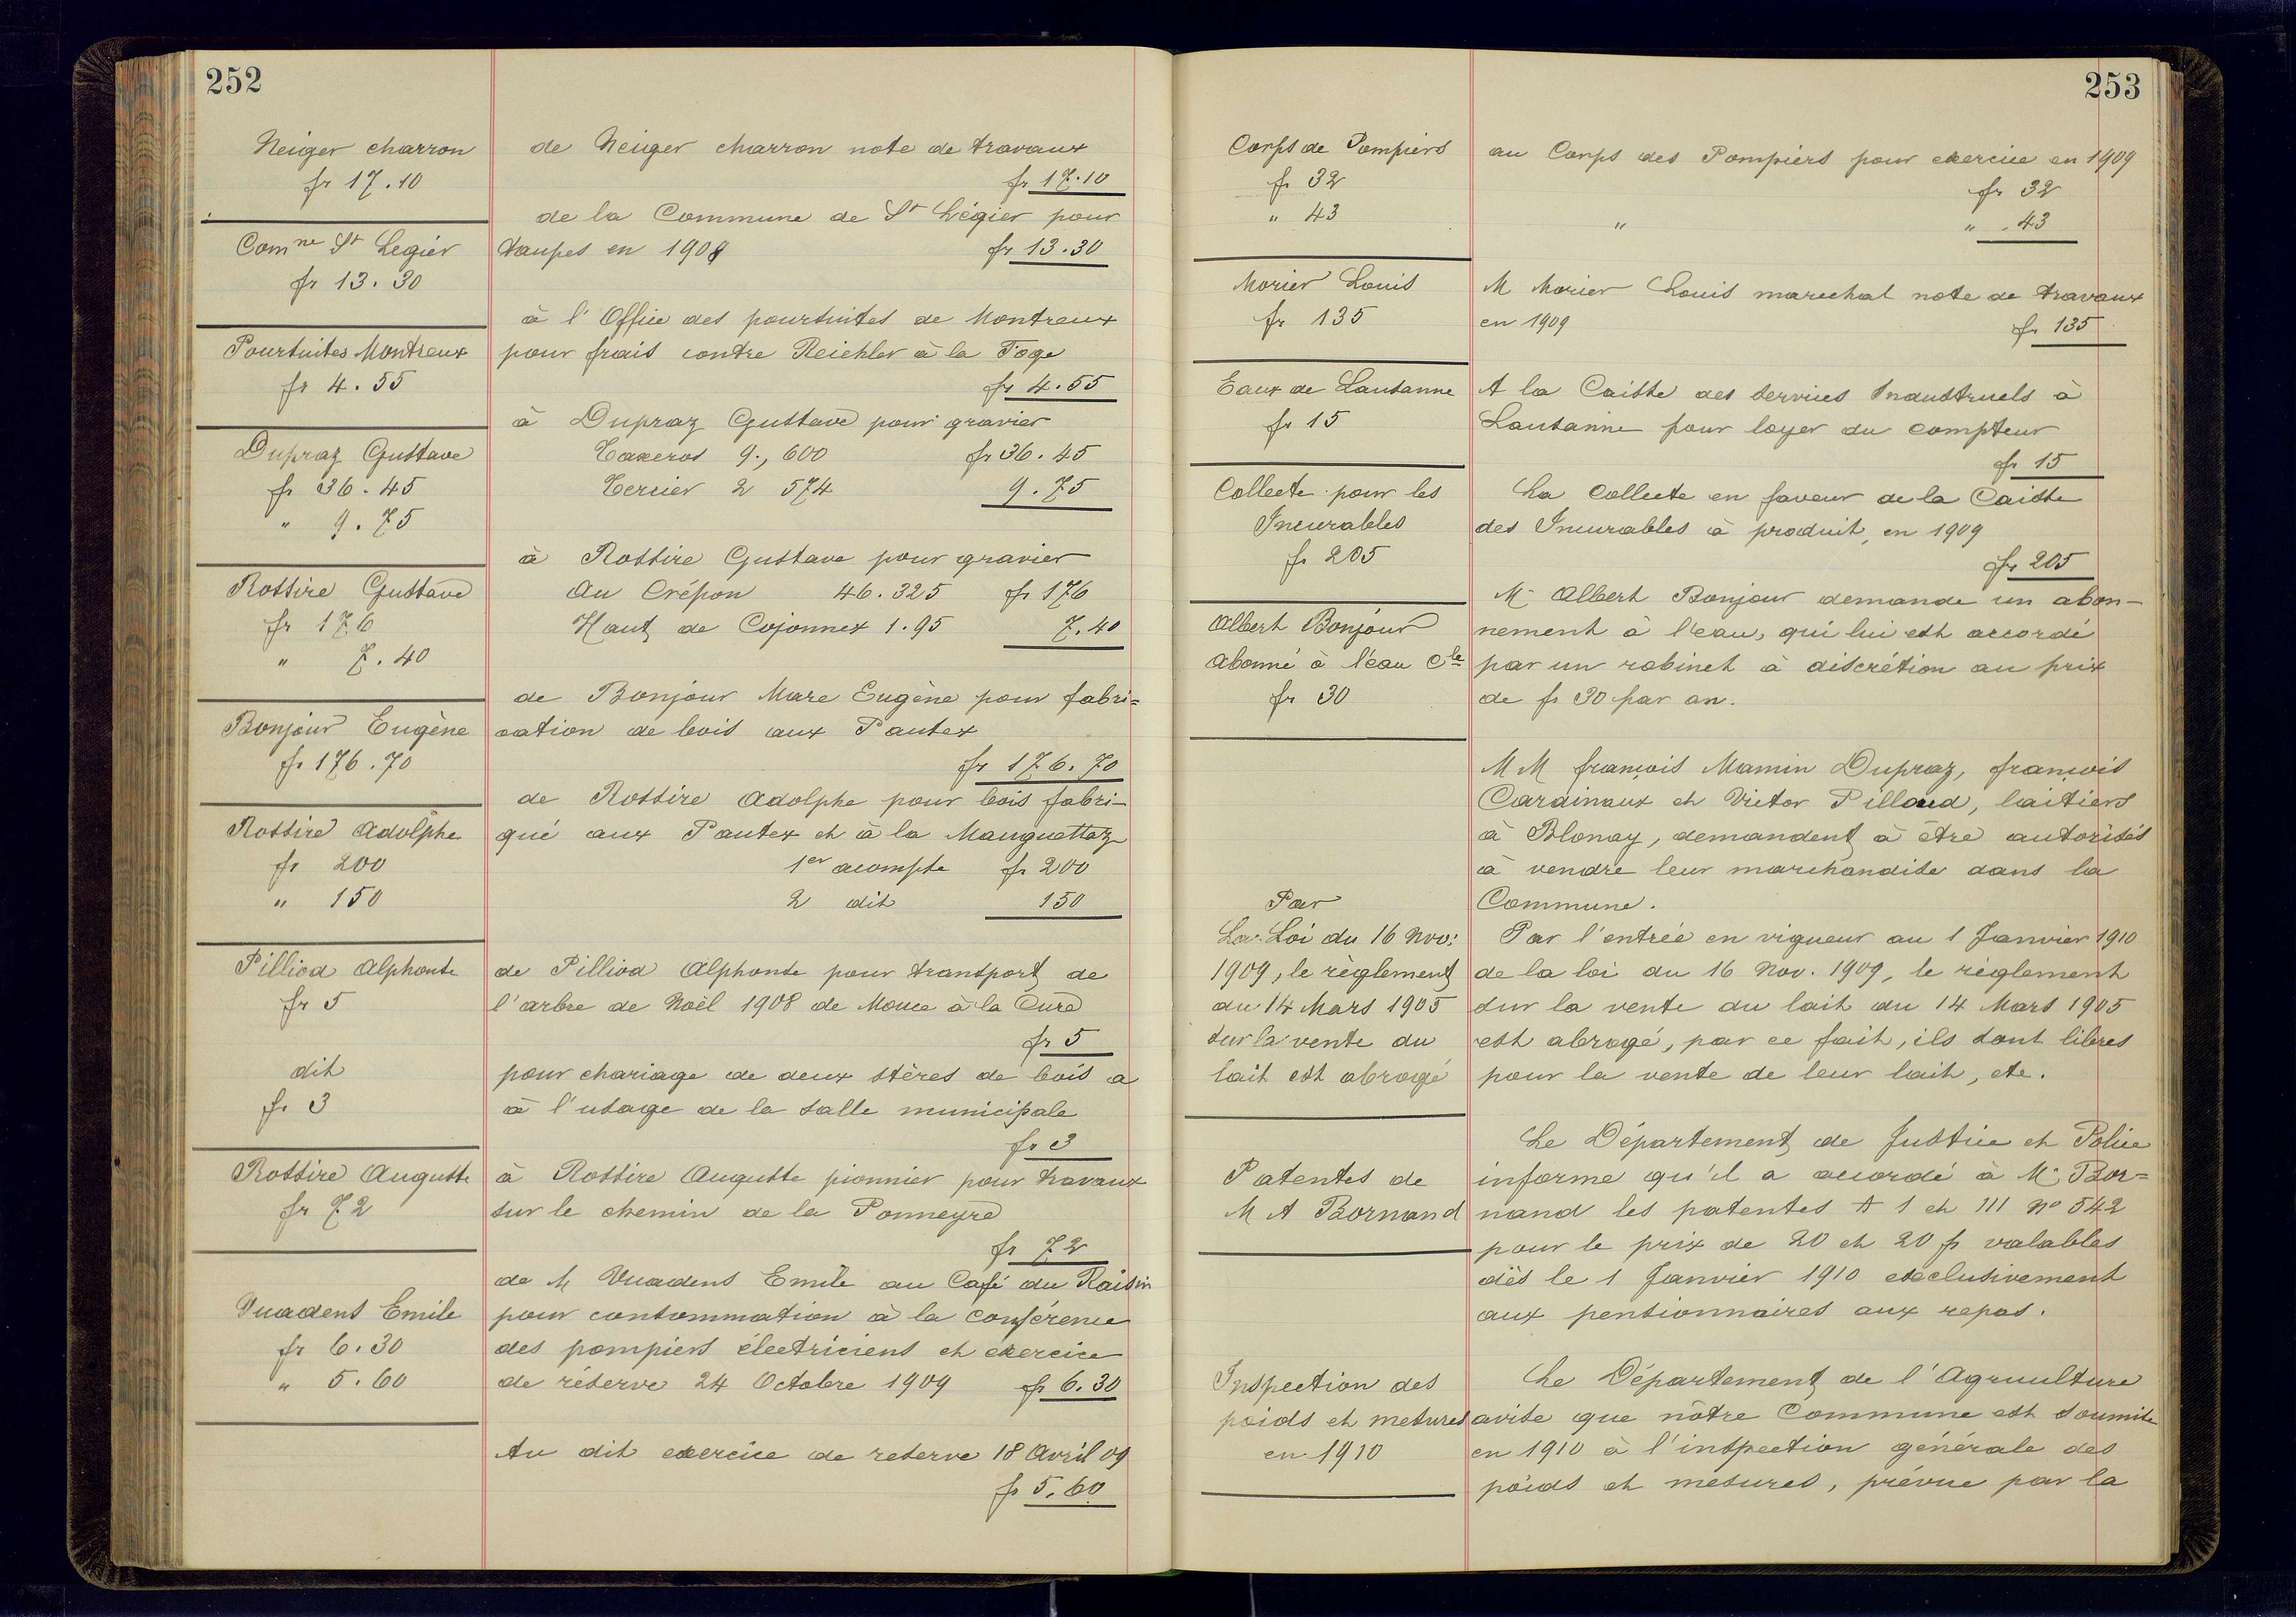 252
Neiger charron
fr 17.10
Comne St Legier
fr 13.30
Poursuites Montreux
fr 4.55
Dupraz Gustave
fr 36.45
" 9.75
Rossire Gustave
fr 176
" 7.40
Bonjour Eugène
fr 176.70
Rossire Adolphe
fr 200
" 150
Pilliod Alphonse
fr 5
dit
fr 3
Rossire Auguste
fr 72
Vuadens Emile
fr 6.30
" 5.60
de Neiger charron note de travaux
fr 17.10
de la Commune de St Légier pour
taupes en 1908 fr 13.30
à l'Office des poursuites de Montreux
pour frais contre Reichler à la Foge
fr 4.55
à Dupraz Gustave pour gravier
9., 600 fr 36.45
Tercier 2 574 9.75
à Rossire Gustave pour gravier
Au Crépon 46.325 fr 176
Haut de Cojonnex 1.95 7.40
de Bonjour Marc Eugène pour fabri=
cation de bois aux Pautex
fr 176.70
de Rossire Adolphe pour bois fabri-
qué aux Pautex et à la Mauguettaz
1er acompte fr 200
2 dit 150
de Pilliod Alphonse pour transport de
l'arbre de Noël 1908 de Mouce à la Cure
fr 5
pour chariage de deux stères de bois a
à l'usage de la salle municipale
fr 3
à Rossire Auguste pionnier pour travaux
sur le chemin de la Ponneyre
fr 72
de M Vuadens Emile au Café du Raisin
pour consommation à la conférence
des pompiers électriciens et exercice
de réserve 24 Octobre 1909 fr 6.30
Au dit exercice de reserve 18 Avril 09
fr 5.60
253
Corps de Pompiers
fr 32
" 43
Morier Louis
fr 135
Eaux de Lausanne
fr 15
Collecte pour les
Incurables
fr 205
Albert Bonjour
Abonné à l'eau Cle
fr 30
Par
La Loi du 16 Nov:
1909, le règlement
du 14 Mars 1905
sur la vente du
lait est abrogé
Patentes de
M A Bornand
Inspection des
poids et mesures
en 1910
au Corps des Pompiers pour exercice en 1909
fr 32
" " 43
M Morier Louis marechal note de travaux
en 1909 fr 135
A la Caisse des services Industruels à
Lausanne pour loyer du compteur
fr 15
La Collecte en faveur de la Caisse
des Incurables à produit, en 1909
fr 205
M. Albert Bonjour demande un abon-
nement à l'eau, qui lui est accordé
par un robinet à discrétion au prix
de fr 30 par an.
M M françois Mamin Dupraz, françois
Cardinaux et Victor Pilloud, laitiers
à Blonay, demandent à être autorisés
à vendre leur marchandise dans la
Commune.
Par l'entrée en vigueur au 1 Janvier 1910
de la loi du 16 Nov. 1909, le règlement
sur la vente du lait du 14 Mars 1905
est abrogé, par ce fait, ils sont libres
pour la vente de leur lait, etc.
Le Département de Justice et Police
informe qu'il a accordé à M. Bor=
nand les patentes A 1 et III No 542
pour le prix de 20 et 20 fr valables
dès le 1 Janvier 1910 exclusivement
aux pensionnaires aux repas.
Le Département de l'Agriculture
avise que nôtre Commune est soumise
en 1910 à l'inspection générale des
poids et mesures, prévue par la